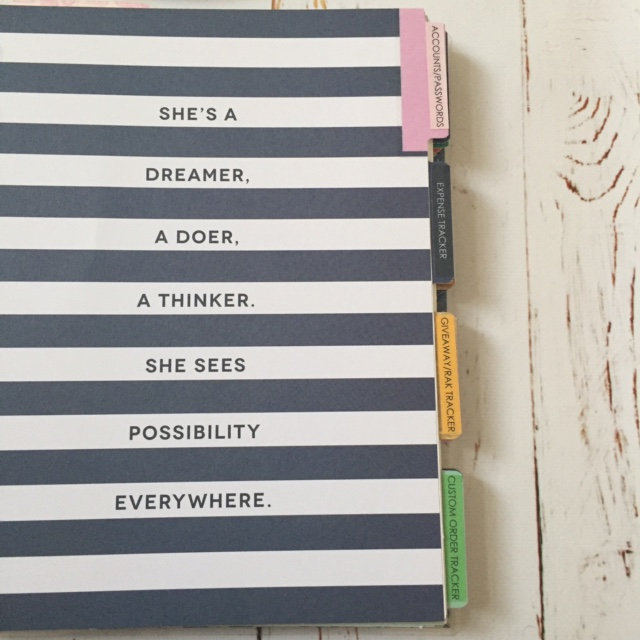 SHE'S A
DREAMER,
A DOER,
A THINKER.
SHE SEES
POSSIBILITY
EVERYWHERE.
ACCOUNTS/PASSWORDS
EXPENSE TRACKER
GIVEAWAY/RAK TRACKER
CUSTOM ORDER TRACKER